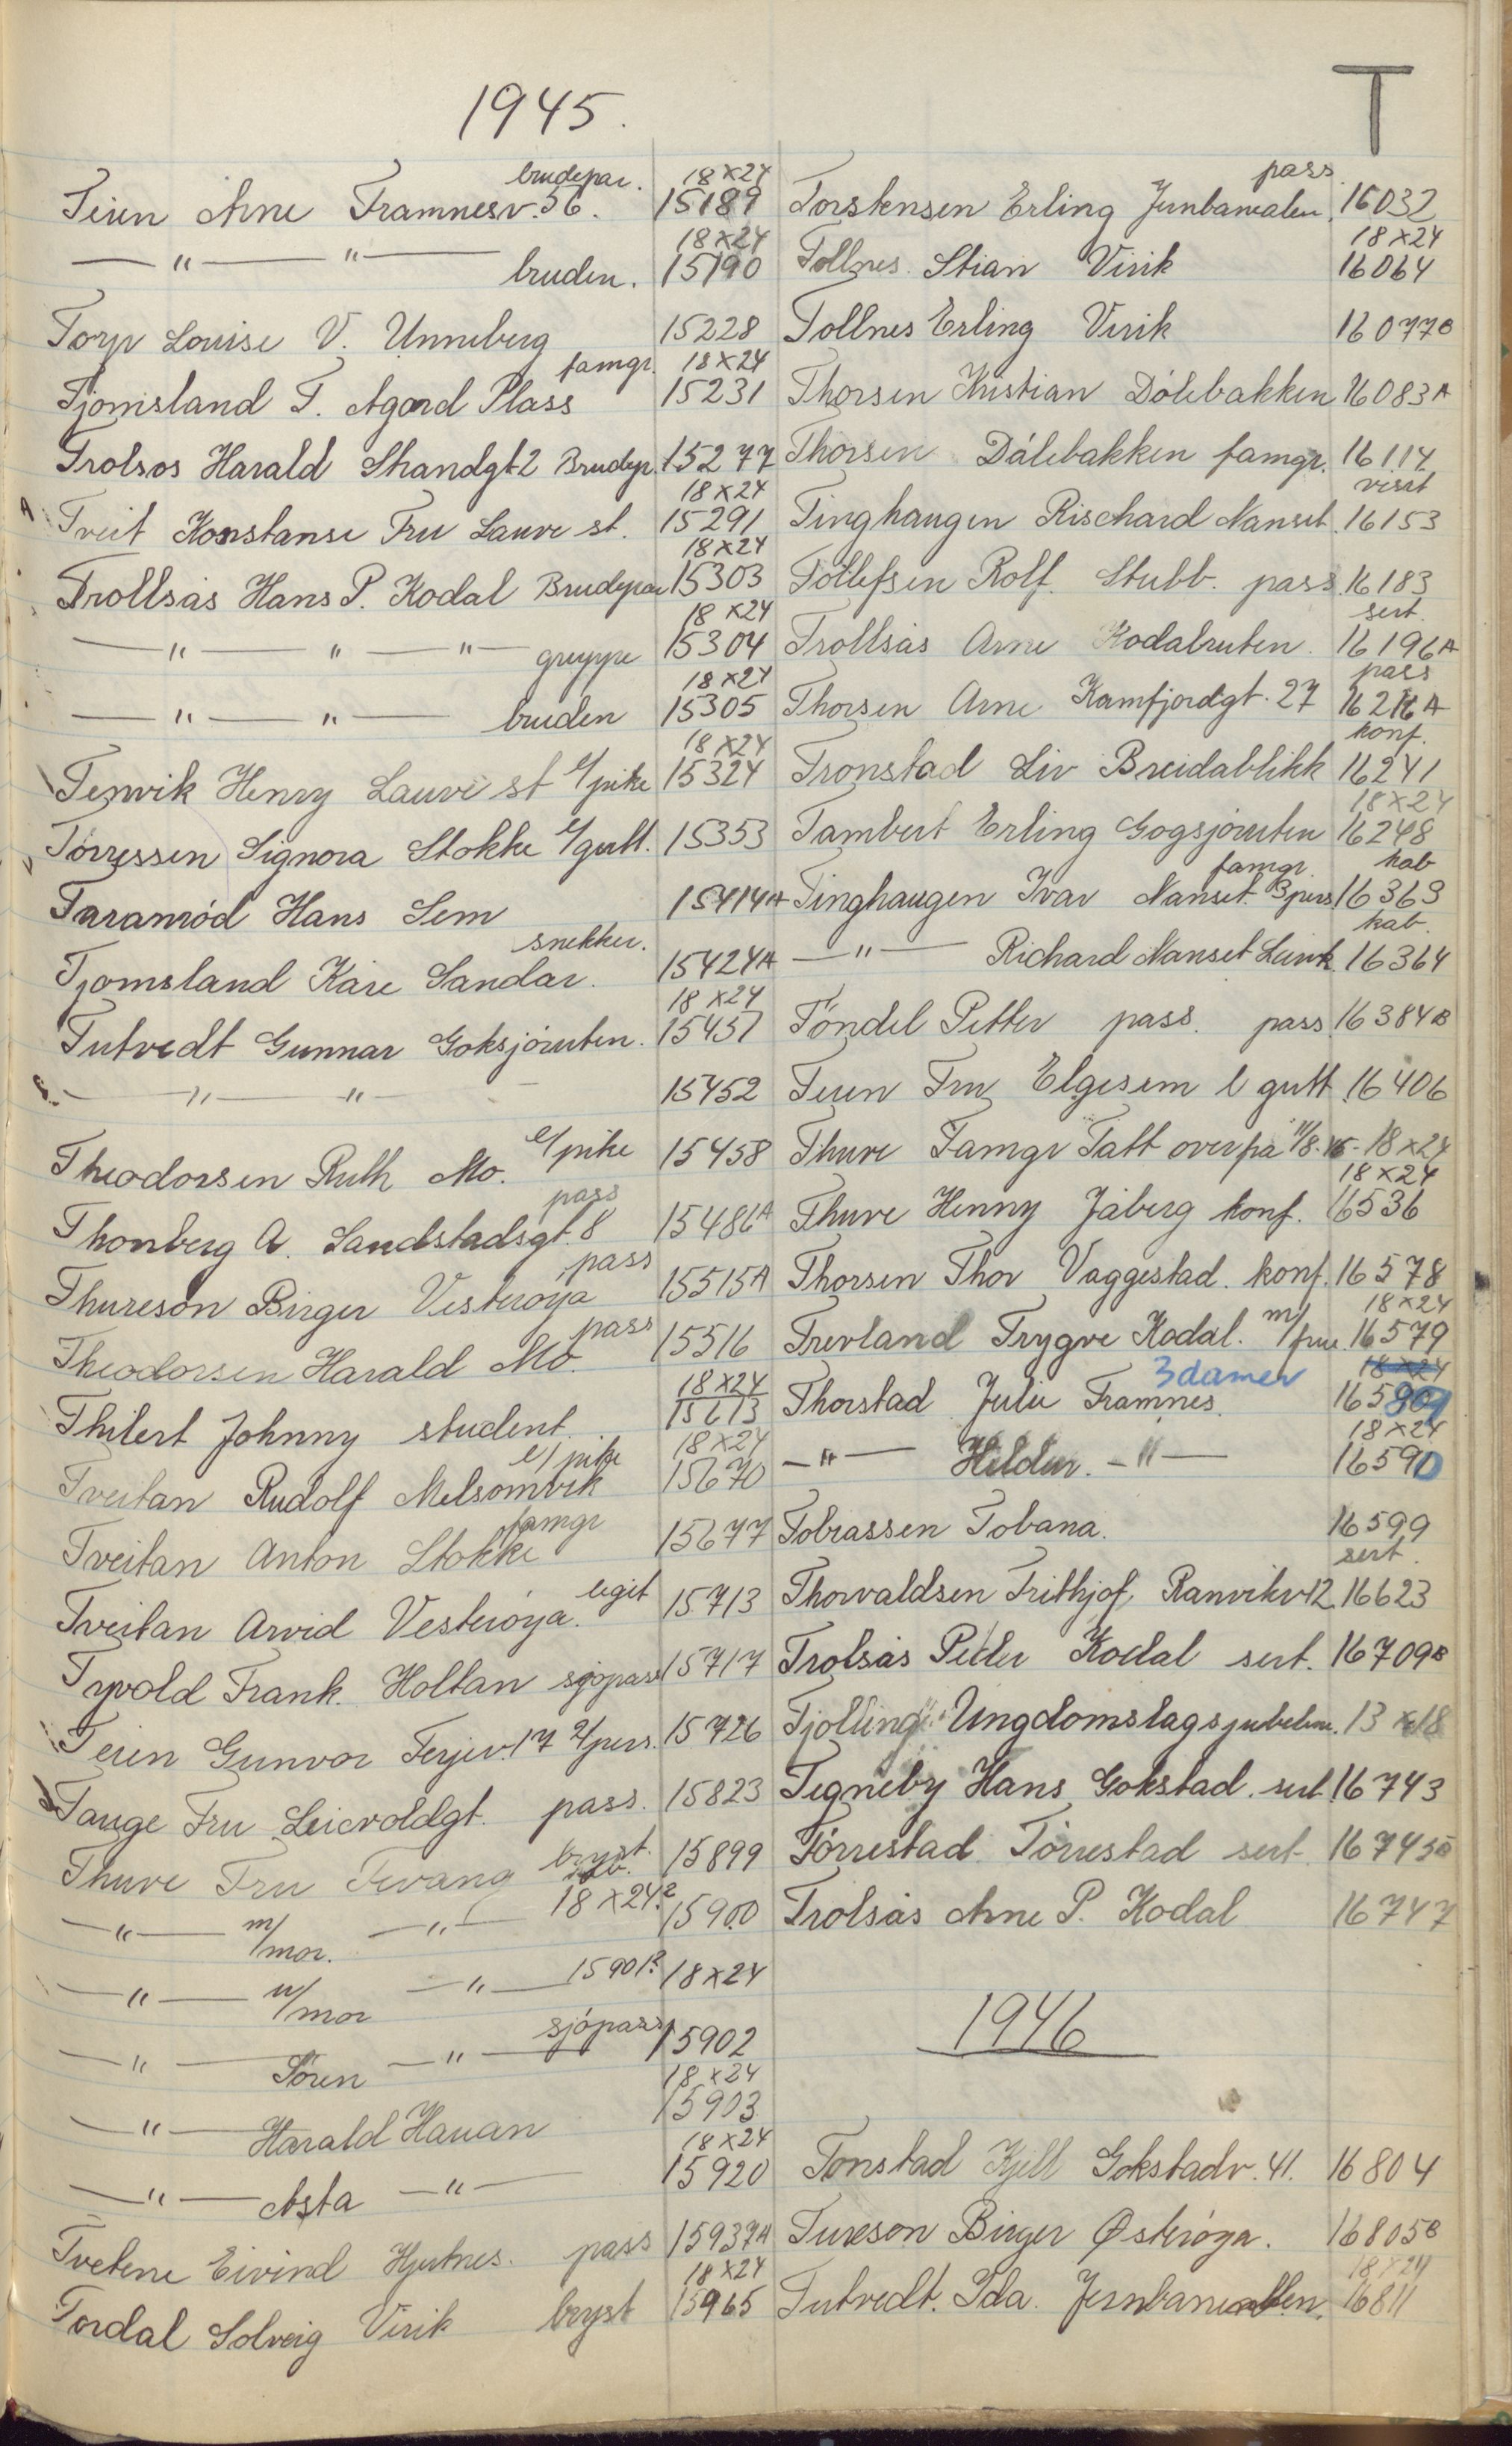 T
1945.
Teien Arne Framnesv. 56. brudepar. 18×24 15189
— " — " — bruden. 18×24 15190
Torp Louise V. Unneberg 15228
Tjomsland T. Agard Plass famgr. 18×24 15231
Trolsos Harald Strandgt 2 Brudepr. 15277
Tveit Konstanse Fru Lauve st. 18×24 15291
Trollsås Hans P. Kodal Brudepar 18×24 15303
— " — " — " — gruppe 18×24 15304
— " — " — bruden 18×24 15305
Tenvik Henry Lauve st l/pike 18×24 15324
Tørressen Signora Stokke l/gutt. 15353
Taranrød Hans Sem 15414A
Tjomsland Kåre Sandar. snekker. 15424A
Tutvedt Gunnar Goksjøruten. 18×24 15451
— " — " — 15452
Theodorsen Ruth Mo. l/pike 15458
Thonberg A. Sandstadsgt. 8 pass 15486A
Thureson Birger Vesterøya pass 15515A
Theodorsen Harald Mo. pass 15516
Thilert Johnny student. 18×24 15613
Tveitan Rudolf Melsomvik l/pike 18×24 15670
Tveitan Anton Stokke famgr 15677
Tveitan Arvid Vesterøya. legit 15713
Tyvold Frank. Holtan sjøpass 15717
Teien Gunvor Terjev. 17 2/pers. 15726
Tauge Fru Leicvoldgt. pass. 15823
Thure Fru Tevang bryst. 15899
— " — m/mor. — " — 18×24? 15900
— " — u/mor — " — 15901? 18×24
— " — Søren — " — sjøpass 15902
— " — Harald Hauan 18×24 15903
— " — Asta — " — 18×24 15920
Tvetene Eivind Hjertnes. pass 15937A
Tordal Solveig Virik bryst 18×24 15965
Torstensen Erling Jernbanealen pass 16032
Tollnes Stian Virik 18×24 16064
Tollnes Erling Virik 16077B
Thorsen Kristian Dølebakken 16083A
Thorsen Dålebakken famgr. 16114
Tinghaugen Rischard Nanset visit 16153
Tollefsen Rolf. Stubb. pass 16183
Trollsås Arne Kodalruten. sert. 16196A
Thorsen Arne Kamfjordgt. 27 pass 16216A
Tronstad Liv Breidablikk konf. 16241
Tambert Erling Gogsjøruten 18×24 16248
Tinghaugen Ivar Nanset. famgr. 3 pers kab 16363
— " — Richard Nanset kab. 16364
Tøndel Petter pass. pass 16384B
Teien Fru Elgesem l gutt 16406
Thure Famgr Tatt over på 11/8.45 - 18×24
Thure Henny Jåberg konf. 18×24 16536
Thorsen Thor Vaggestad. konf. 16578
Trevland Trygve Kodal. m/frue 18×24 16579
Thorstad Julie Framnes. 3 damer 18×24 16589
— " — Hildur. — " — 18×24 16590
Tobiassen Tobana. 16599
Thorvaldsen Frithjof Ranvikv 12 sert. 16623
Trolsås Petter Kodal sert. 16709B
Tjølling Ungdomslagsjubeleum. 13×18
Tegneby Hans Gokstad. sert. 16743
Tørrestad Tørrestad sert. 16745B
Trolsås Arne P. Kodal 16747
1946
Tonstad Kjell Gokstadv. 41. 16804
Tureson Birger Østerøya. 16805B
Tutvedt. Ida. Jernbanealleen. 18×24 16811